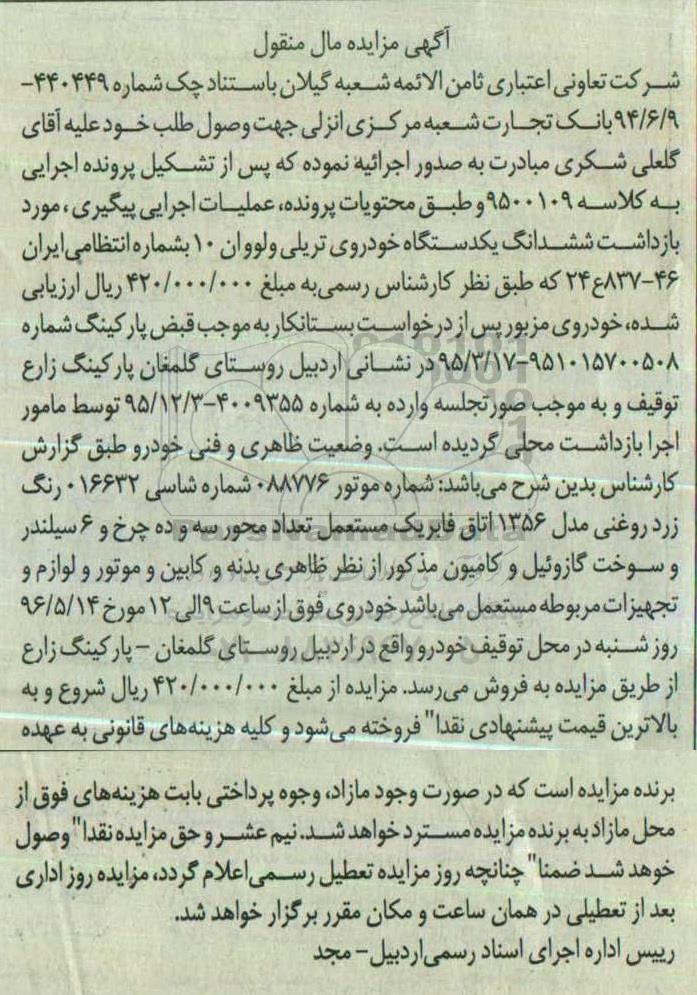 آگهی مزایده مال منقول
شرکت تعاونی اعتباری ثامن الائمه شعبه گیلان باستناد چک شماره ۴۴۰۴۴۹-
۹۴/۶/۹بانک تجارت شعبه مرکزی انزلی جهت وصول طلب خود علیه آقای
گلعلی شکری مبادرت به صدور اجرائیه نموده که پس از تشکیل پرونده اجرایی
به کلاسه ۹۵۰۰۱۰۹و طبق محتویات پرونده، عملیات اجرایی پیگیری ، مورد
بازداشت ششدانگ یکدستگاه خودروی تریلی ولووان ۱۰ بشماره انتظامی‌ایران
۴۶-۸۳۷ع۲۴ که طبق نظر کارشناس رسمی‌به مبلغ ۴۲۰/۰۰۰/۰۰۰ ریال ارزیابی
شده، خودروی مزبور پس از درخواست بستانکار به موجب قبض پارکینگ شماره
۹۵/۳/۱۷-۹۵۱۰۱۵۷۰۰۵۰۸ در نشانی اردبیل روستای گلمغان پارکینگ زارع
توقیف و به موجب صورتجلسه وارده به شماره ۴۰۰۹۳۵۵-۹۵/۱۲/۳ توسط مامور
اجرا بازداشت محلی گردیده است. وضعیت ظاهری و فنی خودرو طبق گزارش
کارشناس بدین شرح می‌باشد: شماره موتور ۰۸۸۷۷۶ شماره شاسی ۰۱۶۶۳۲ رنگ
زرد روغنی مدل ۱۳۵۶ اتاق فابریک مستعمل تعداد محور سه و ده چرخ و ۶ سیلندر
و سوخت گازوئیل و کامیون مذکور از نظر ظاهری بدنه و کابین و موتور و لوازم و
تجهیزات مربوطه مستعمل می‌باشد خودروی فوق از ساعت ۹الی ۱۲ مورخ ۹۶/۵/۱۴
روز شنبه در محل توقیف خودرو واقع در اردبیل روستای گلمغان – پارکینگ زارع
از طریق مزایده به فروش می‌رسد. مزایده از مبلغ ۴۲۰/۰۰۰/۰۰۰ ریال شروع و به
بالاترین قیمت پیشنهادی نقدا" فروخته می‌شود و کلیه هزینه‌های قانونی به عهده
برنده مزایده است که در صورت وجود مازاد، وجوه پرداختی بابت هزینه‌های فوق از
محل مازاد به برنده مزایده مسترد خواهد شد. نیم عشر و حق مزایده نقدا" وصول
خوهد شد ضمنا" چنانچه روز مزایده تعطیل رسمی‌اعلام گردد، مزایده روز اداری
بعد از تعطیلی در همان ساعت و مکان مقرر برگزار خواهد شد.
رییس اداره اجرای اسناد رسمی‌اردبیل- مجد